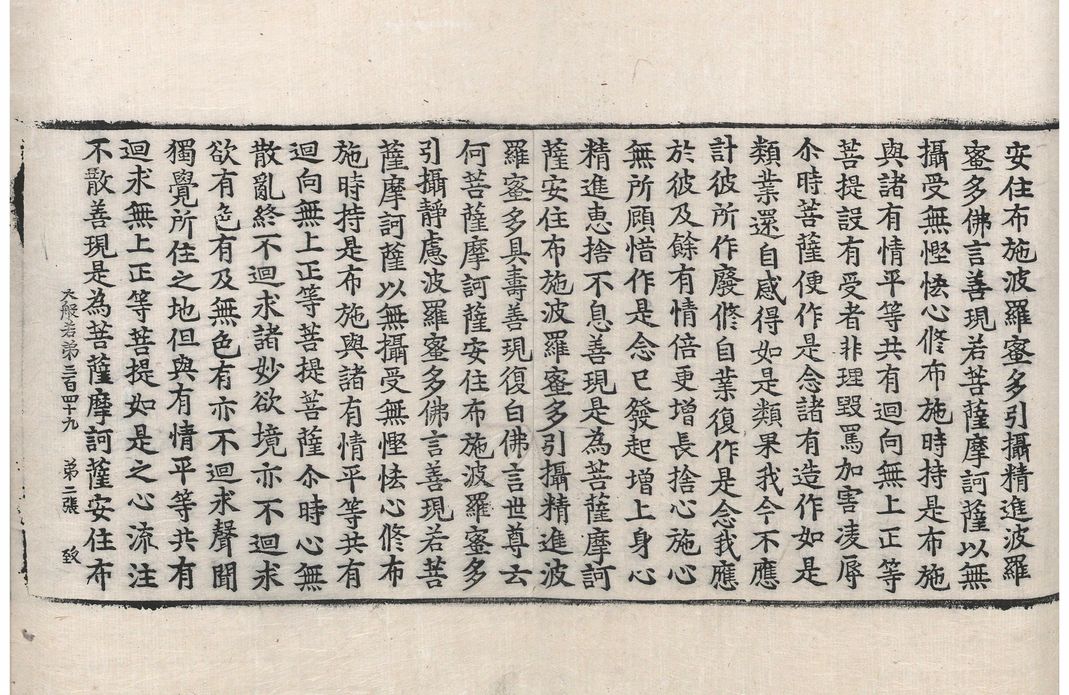 安住布施波羅蜜多引攝精進波羅
蜜多佛言善現若菩薩摩訶薩以無
攝受無慳悋心修布施時持是布施
與諸有情平等共有迴向無上正等
菩提設有受者非理毀罵加害凌辱
尒時菩薩便作是念諸有造作如是
類業還自感得如是類果我今不應
計彼所作廢修自業復作是念我應
於彼及餘有情倍更增長捨心施心
無所顧惜作是念已發起增上身心
精進惠捨不息善現是為菩薩摩訶
薩安住布施波羅蜜多引攝精進波
羅蜜多具壽善現復白佛言世尊云
何菩薩摩訶薩安住布施波羅蜜多
引攝靜慮波羅蜜多佛言善現若菩
薩摩訶薩以無攝受無慳悋心修布
施時持是布施與諸有情平等共有
迴向無上正等菩提菩薩尒時心無
散亂終不迴求諸妙欲境亦不迴求
欲有色有及無色有亦不迴求聲聞
獨覺所住之地但與有情平等共有
迴求無上正等菩提如是之心流注
不散善現是為菩薩摩訶薩安住布
大般若第三百四十九 第二張 致